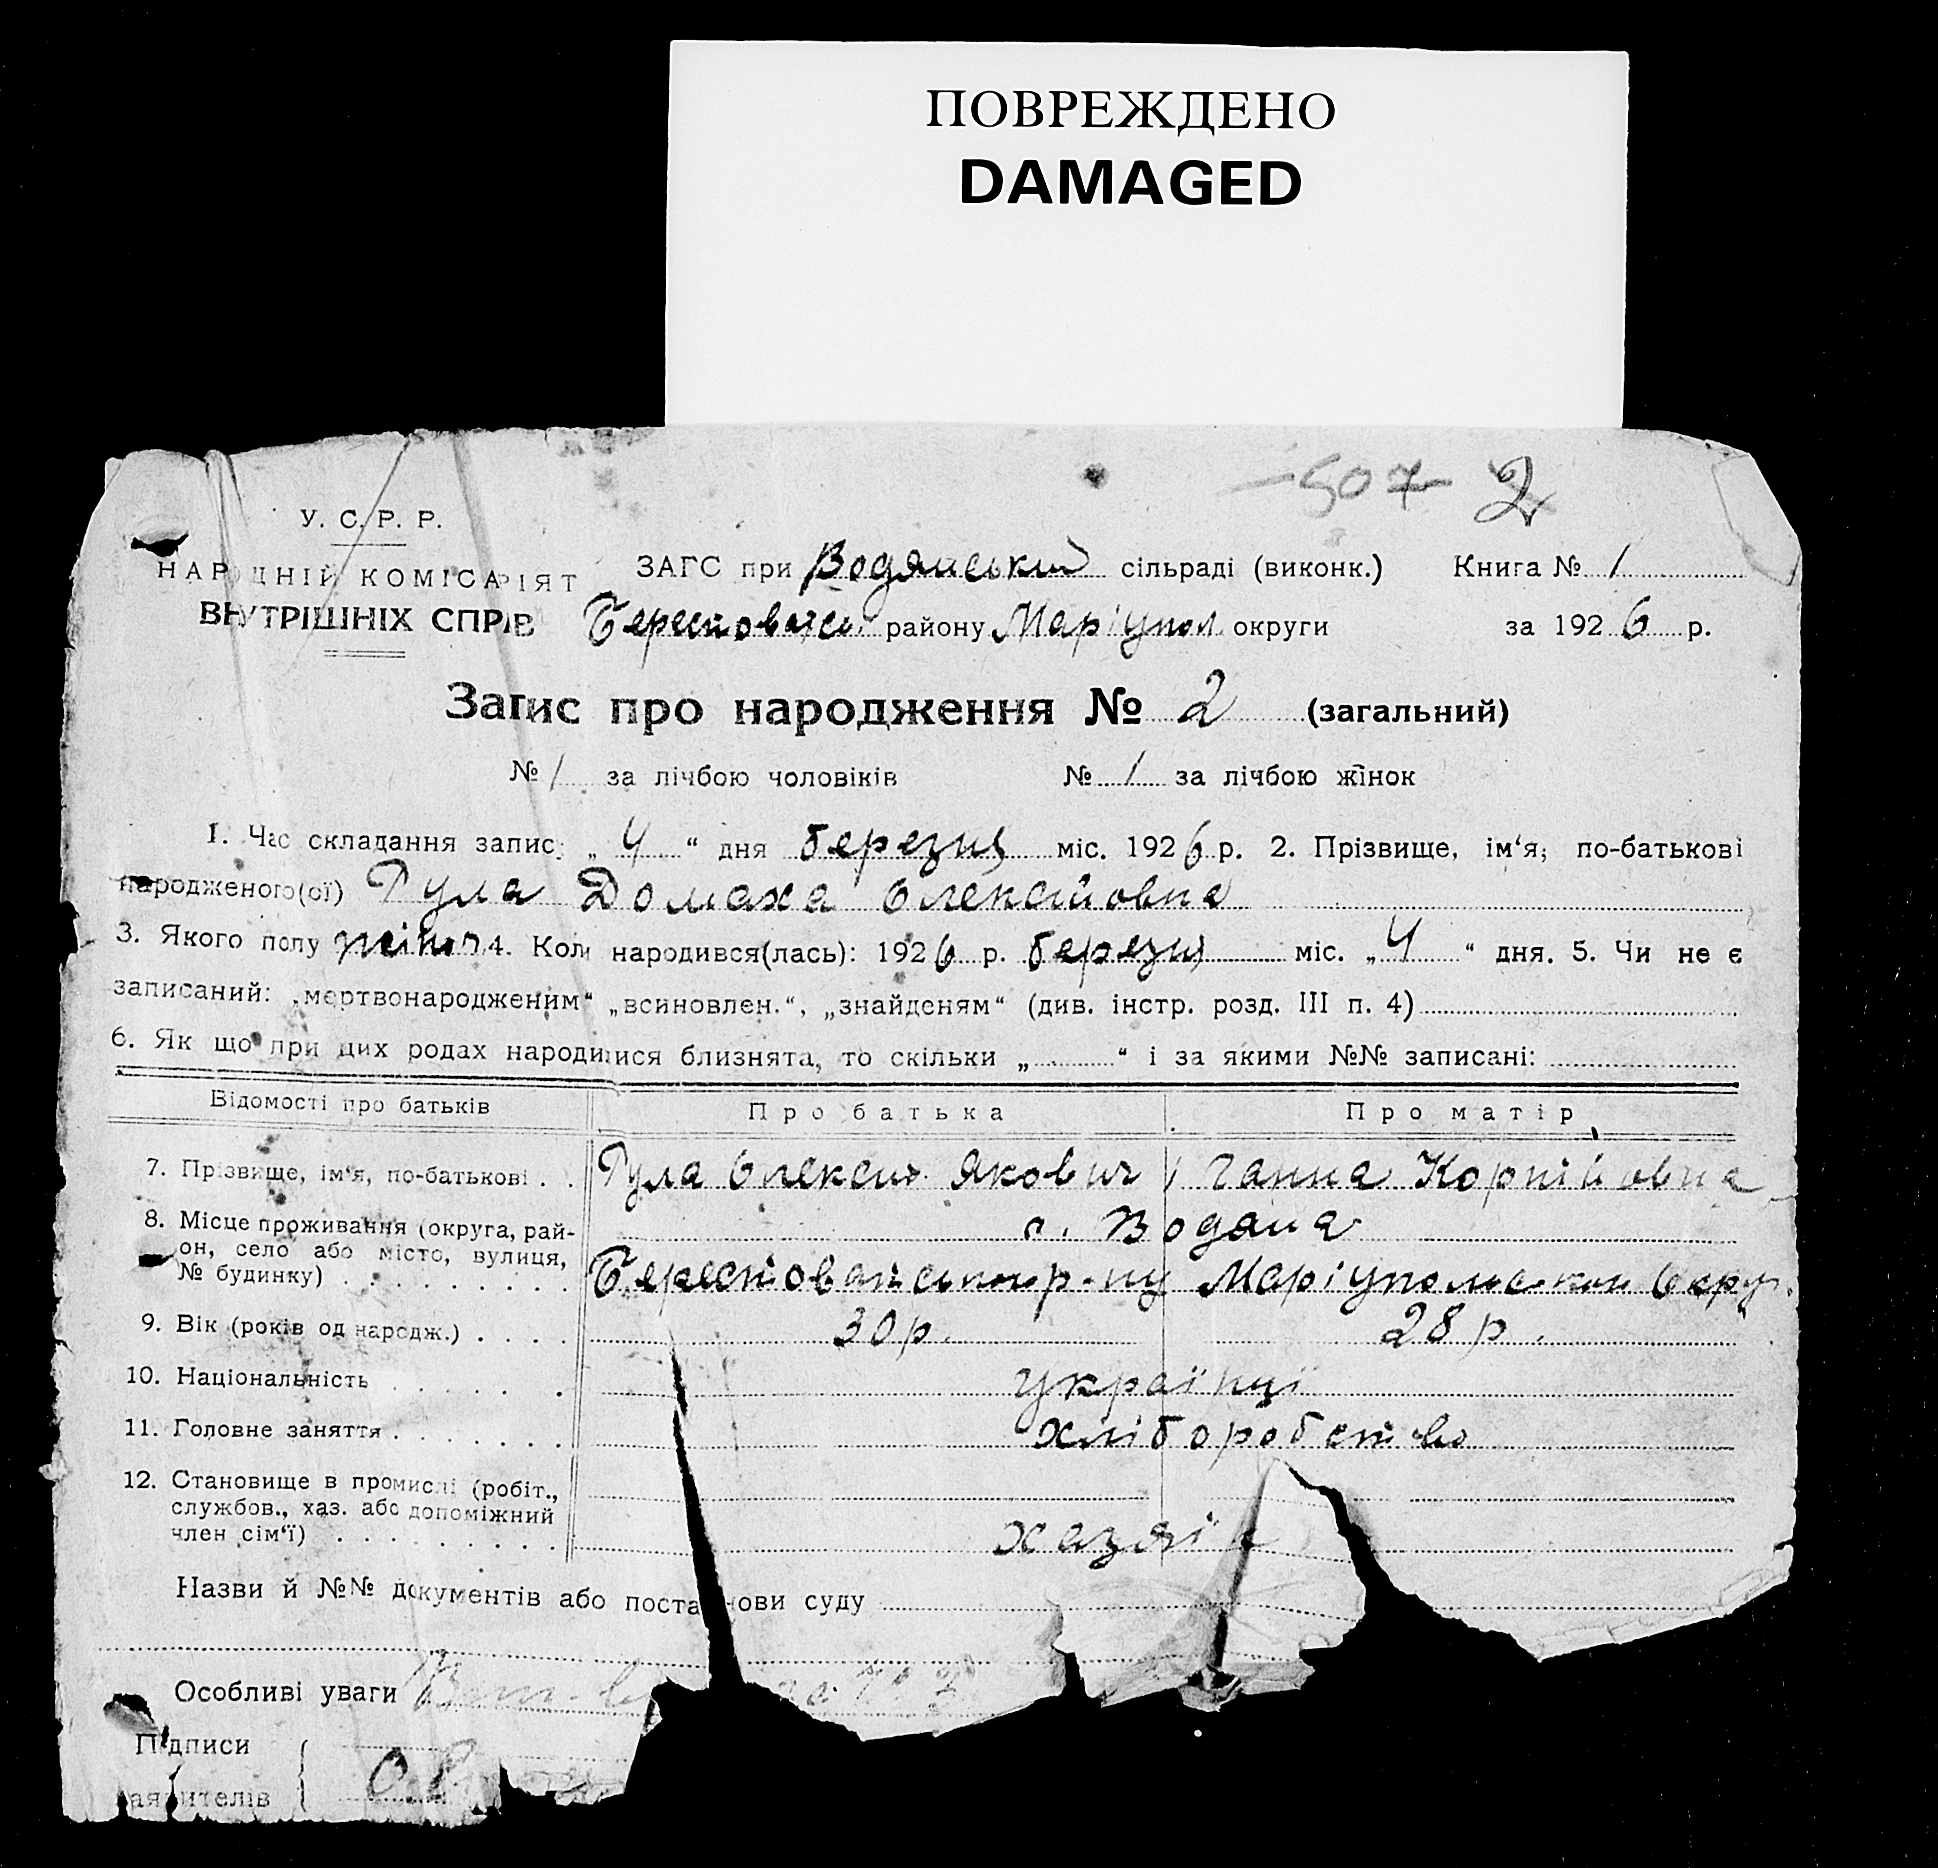 ПОВРЕЖДЕНО
DAMAGED
507 2
У. С. Р. Р.
НАРОДНІЙ КОМІСАРІЯТ
ВНУТРІШНІХ СПРІВ
ЗАГС при Водянський сільраді (виконк.) Книга № 1
Берестоватсь. району Маріупол. округи за 1926 р.
Запис про народження № 2 (загальний)
№ 1 за лічбою чоловіків № 1 за лічбою жінок
1. Час складання запис „4“ дня березня міс. 1926 р. 2. Прізвище, ім‘я, по-батькові
народженого(ої) Гула Домаха Олексійовна
3. Якого полу жіноч 4. Коли народився(лась): 1926 р. березня міс. „4“ дня. 5. Чи не є
записаний: „мертвонародженим“ „всиновлен.“, „знайденям“ (див. інстр. розд. III п. 4)
6. Як що при цих родах народилися близнята, то скільки „ “ і за якими №№ записані:
Відомості про батьків Про батька Про матір
7. Прізвище, ім‘я, по-батькові . . Гула Олексій Якович Ганна Корнійовна
8. Місце проживання (округа, рай-
он, село або місто, вулиця,
№ будинку) . . . . . . . . .
с. Водяна
Берестоватського р-ну Маріупольської Округ.
9. Вік (років од народж.) . . . . 30 р. 28 р.
10. Національність . . . . . . . українці
11. Головне заняття . . . . . . . хліборобство
12. Становище в промислі (робіт.,
службов., хаз. або допоміжний
член сім‘ї) . . . . . . . . .
хазяїн
Назви й №№ документів або постанови суду
Особливі уваги
Підписи
заявителів